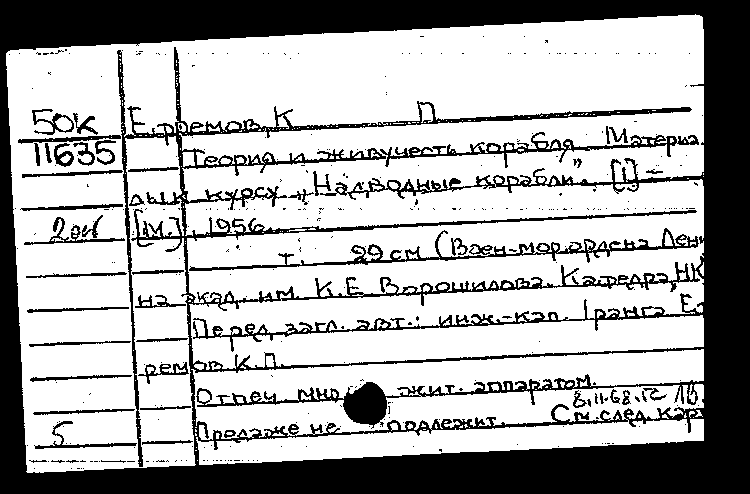 50К Ефремов, К П
11635 Теория и живучесть корабля. Материа
лы к курсу „Надводные корабли". [1] –
[М.], 1956.
т. 29 см (Воен-мор. ордена Лени
на акад. им. К.Е Ворошилова. Кафедра НК
Перед загл. авт.: инж.-кап. 1 ранга Еф
ремов К.П.
Отпеч. мно жит. аппаратом.
8.II.68.
5 Продаже не подлежит. См. след. карт